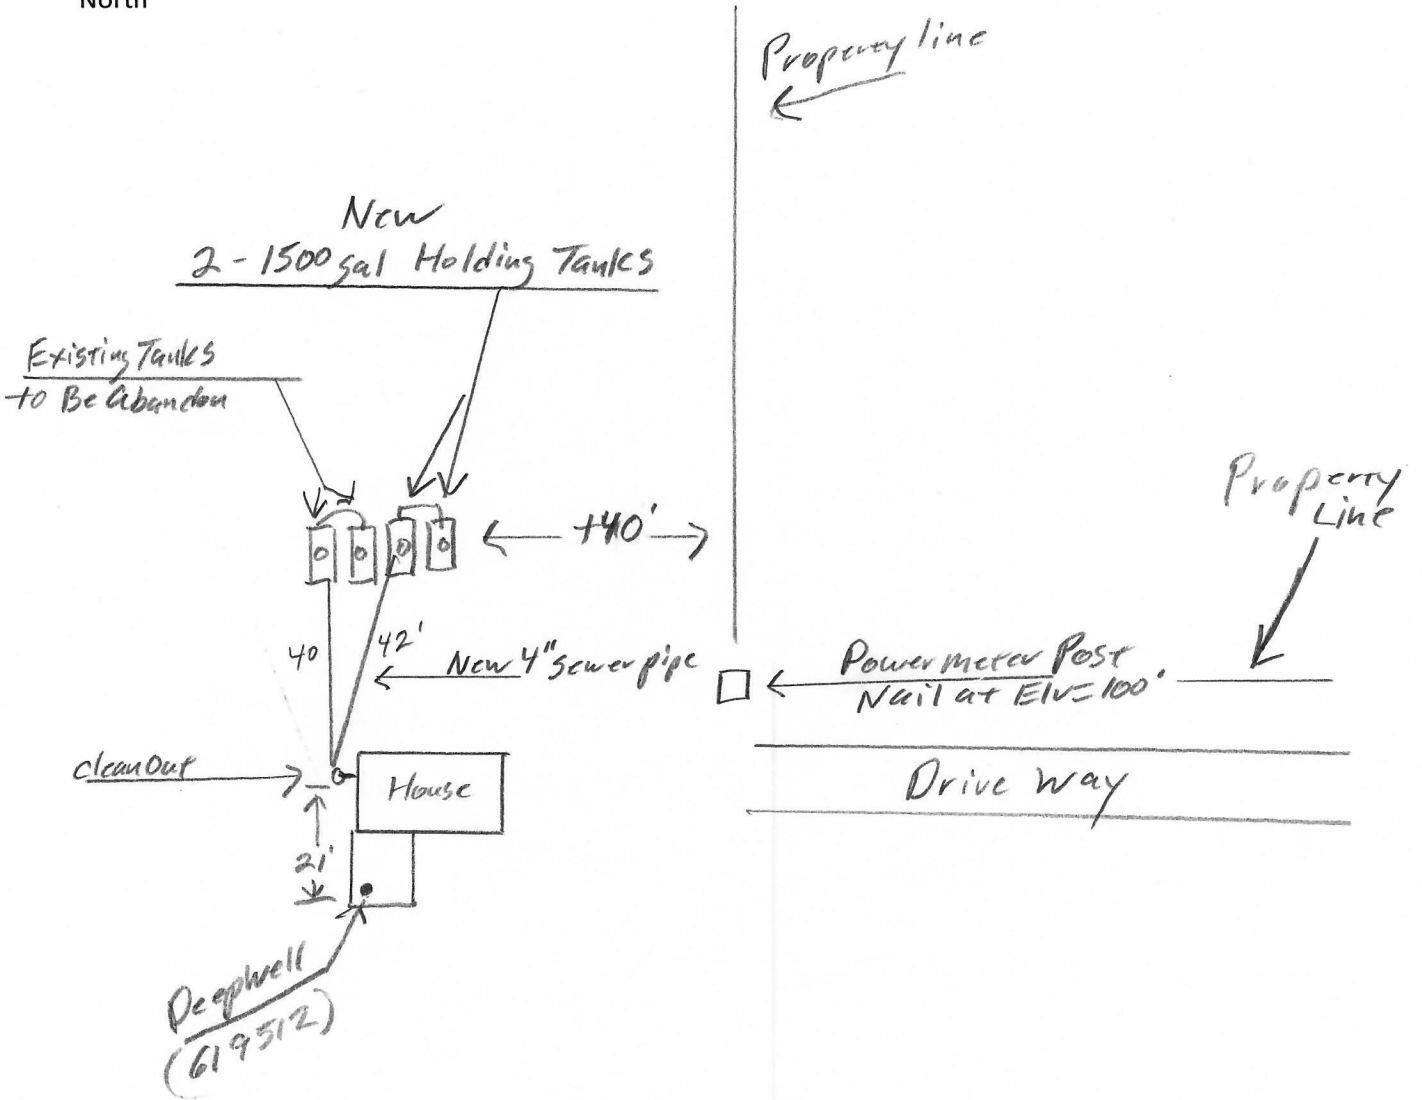 North
Property line
New
2 - 1500 gal Holding Tanks
Existing Tanks
to Be Abandon
+40'
Property
Line
40
42'
New 4" sewer pipe
Power meter Post
Nail at Elv=100'
cleanOut
House
Drive Way
21'
Deepwell
(619512)